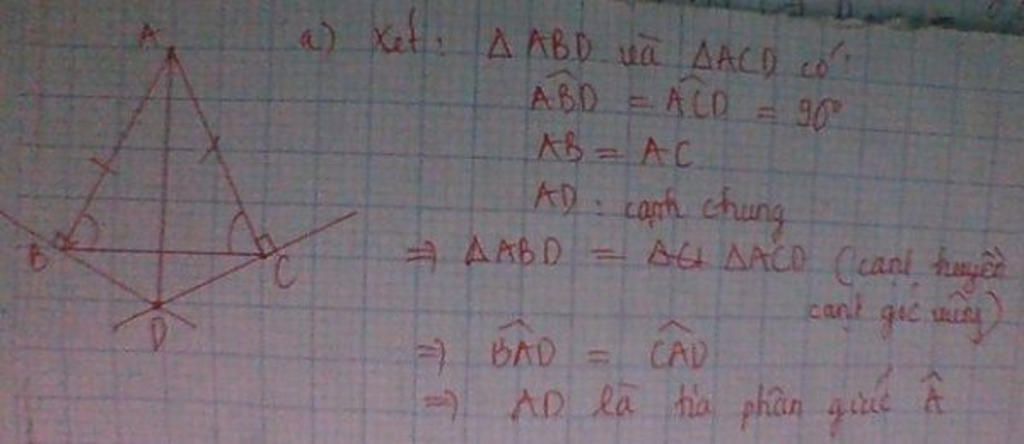 A
B
C
D
a) Xét: Δ ABD và ΔACD có:
ABD̂ = ACD̂ = 90°
AB = AC
AD : cạnh chung
=> ΔABD = ΔACD (cạnh huyền
cạnh góc vuông)
=> BAD̂ = CAD̂
=> AD là tia phân giác Â